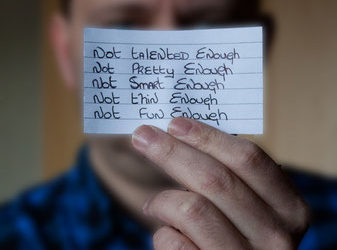 Not talented Enough
Not Pretty Enough
Not Smart Enough
Not thin Enough
Not Fun Enough